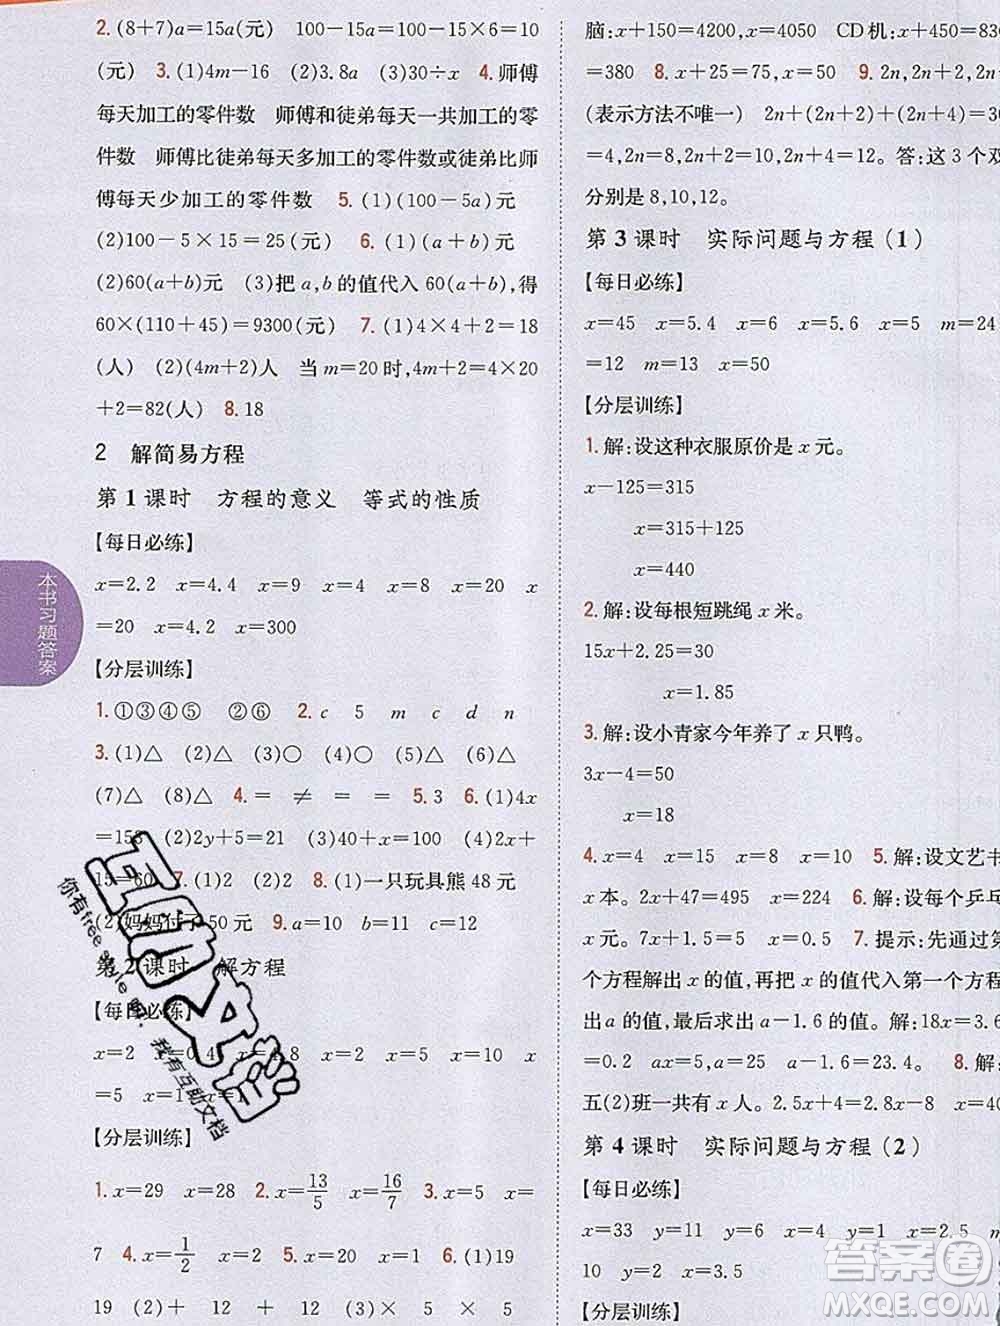 2. (8+7)a=15a(元) 100-15a=100-15×6=10
(元) 3. (1)4m-16 (2)3.8a (3)30÷x 4. 师傅
每天加工的零件数 师傅和徒弟每天一共加工的零
件数 师傅比徒弟每天多加工的零件数或徒弟比师
傅每天少加工的零件数 5. (1)(100-5a)元
(2)100-5×15=25(元) 6. (1)(a+b)元
(2)60(a+b)元 (3)把 a,b 的值代入 60(a+b),得
60×(110+45)=9300(元) 7. (1)4×4+2=18
(人) (2)(4m+2)人 当 m=20 时,4m+2=4×20
+2=82(人) 8. 18
2 解简易方程
第 1 课时 方程的意义 等式的性质
【每日必练】
x=2.2 x=4.4 x=9 x=4 x=8 x=20 x
=20 x=4.2 x=300
【分层训练】
1. ①③④⑤ ②⑥ 2. c 5 m c d n
3. (1)△ (2)△ (3)○ (4)△ (5)△ (6)△
(7)△ (8)△ 4. = ≠ = = 5. 3 6. (1)4x
=158 (2)2y+5=21 (3)40x=100 (4)2x+
15=60 7. (1)2 (2)2 8. (1)一只玩具熊 48 元
(2)妈妈付了50 元 9. a=10 b=11 c=12
第 2 课时 解方程
【每日必练】
x=2 x=0.4 8 x=2 x=5 x=16 x
=5 x=1
【分层训练】
1. x=29 x=28 2. x=13/5 x=16/7 3. x=5 x=
7 4. x=1/2 x=2 5. x=20 x=1 6. (1)19
19 (2)+ 12 + 12 (3)× 5 × 5
本书习题答案
脑:x+150=4200,x=4050 CD 机:x+450=830
=380 8. x+25=75,x=50 9. 2n,2n+2,2n+
(表示方法不唯一) 2n+(2n+2)+(2n+4)=30
=4,2n=8,2n+2=10,2n+4=12。答:这 3 个双
分别是 8,10,12。
第 3 课时 实际问题与方程(1)
【每日必练】
x=45 x=5.4 x=6 x=5.6 x=5 m=24
=12 m=13 x=50
【分层训练】
1. 解:设这种衣服原价是 x 元。
x-125=315
x=315+125
x=440
2. 解:设每根短跳绳 x 米。
15x+2.25=30
x=1.85
3. 解:设小青家今年养了 x 只鸭。
3x-4=50
x=18
4. x=4 x=15 x=8 x=10 5. 解:设文艺书
x 本。2x+47=495 x=224 6. 解:设每个乒乓
x 元。7x+1.5=5 x=0.5 7. 提示:先通过第
个方程解出 x 的值,再把 x 的值代入第一个方程
出 a 的值,最后求出 a-1.6 的值。解:18x=3.6
=0.2 ax=5 a=25 a-1.6=23.4。 8. 解:
五(2)班一共有 x 人。2.5x+4=2.8x-8 x=40
第 4 课时 实际问题与方程(2)
【每日必练】
x=33 y=11 y=6 x=4 y=1 x=2.5 m
10 x=2 x=3.5
【分层训练】
你有free style吗.
我有互助文档
答案圈
MXQE.COM